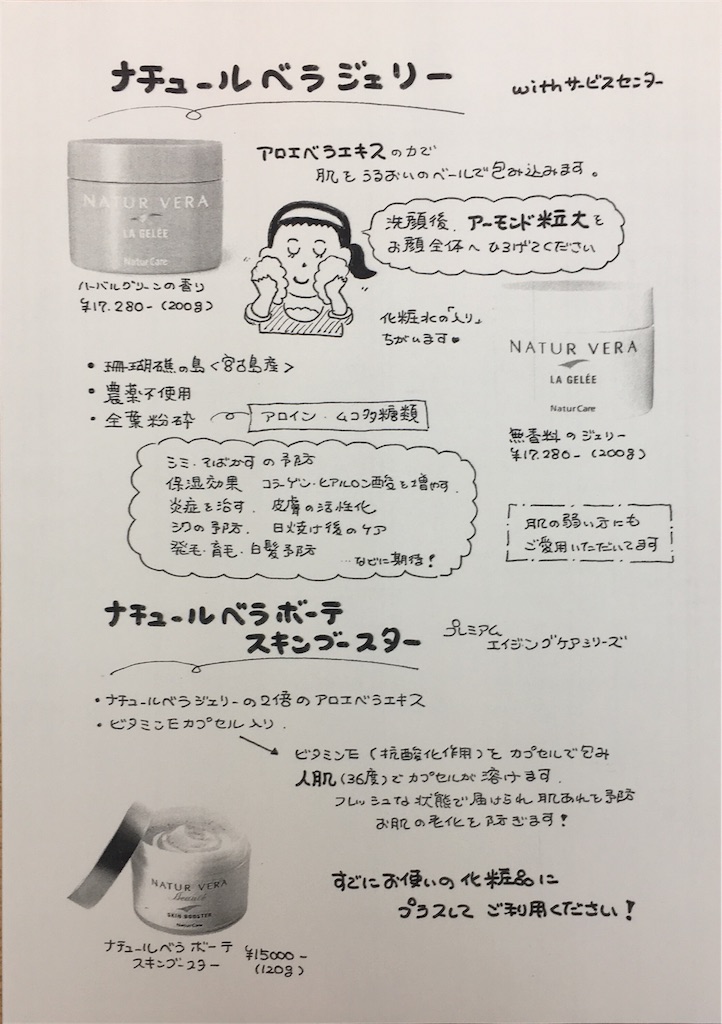 ナチュールベラジェリー
withサービスセンター
アロエベラエキスの力で
肌をうるおいのベールで包み込みます。
NATUR VERA
LA GELÉE
NaturCare
洗顔後、アーモンド粒大を
お顔全体へひろげてください
ハーバルグリーンの香り
¥17.280-(200g)
化粧水の「入り」
ちがいます
NATUR VERA
LA GELÉE
NaturCare
無香料のジェリー
¥17.280-(200g)
・珊瑚礁の島<宮古島産>
・農薬不使用
・全葉粉砕
アロイン・ムコ多糖類
シミ・そばかすの予防
保湿効果 コラーゲン・ヒアルロン酸を増やす.
炎症を治す. 皮膚の活性化
シワの予防. 日焼け後のケア
発毛・育毛・白髪予防
…などに期待!
肌の弱い方にも
ご愛用いただいてます
ナチュールベラボーテ
スキンブースター
プレミアム
エイジングケアシリーズ
・ナチュールベラジェリーの2倍のアロエベラエキス
・ビタミンEカプセル入り.
ビタミンE(抗酸化作用)をカプセルで包み
人肌(36度)でカプセルが溶けます.
フレッシュな状態で届けられ肌あれを予防
お肌の老化を防ぎます!
NATUR VERA
Beauté
SKIN BOOSTER
NaturCare
すでにお使いの化粧品に
プラスしてご利用ください!
ナチュールベラボーテ
スキンブースター
¥15000-
(120g)